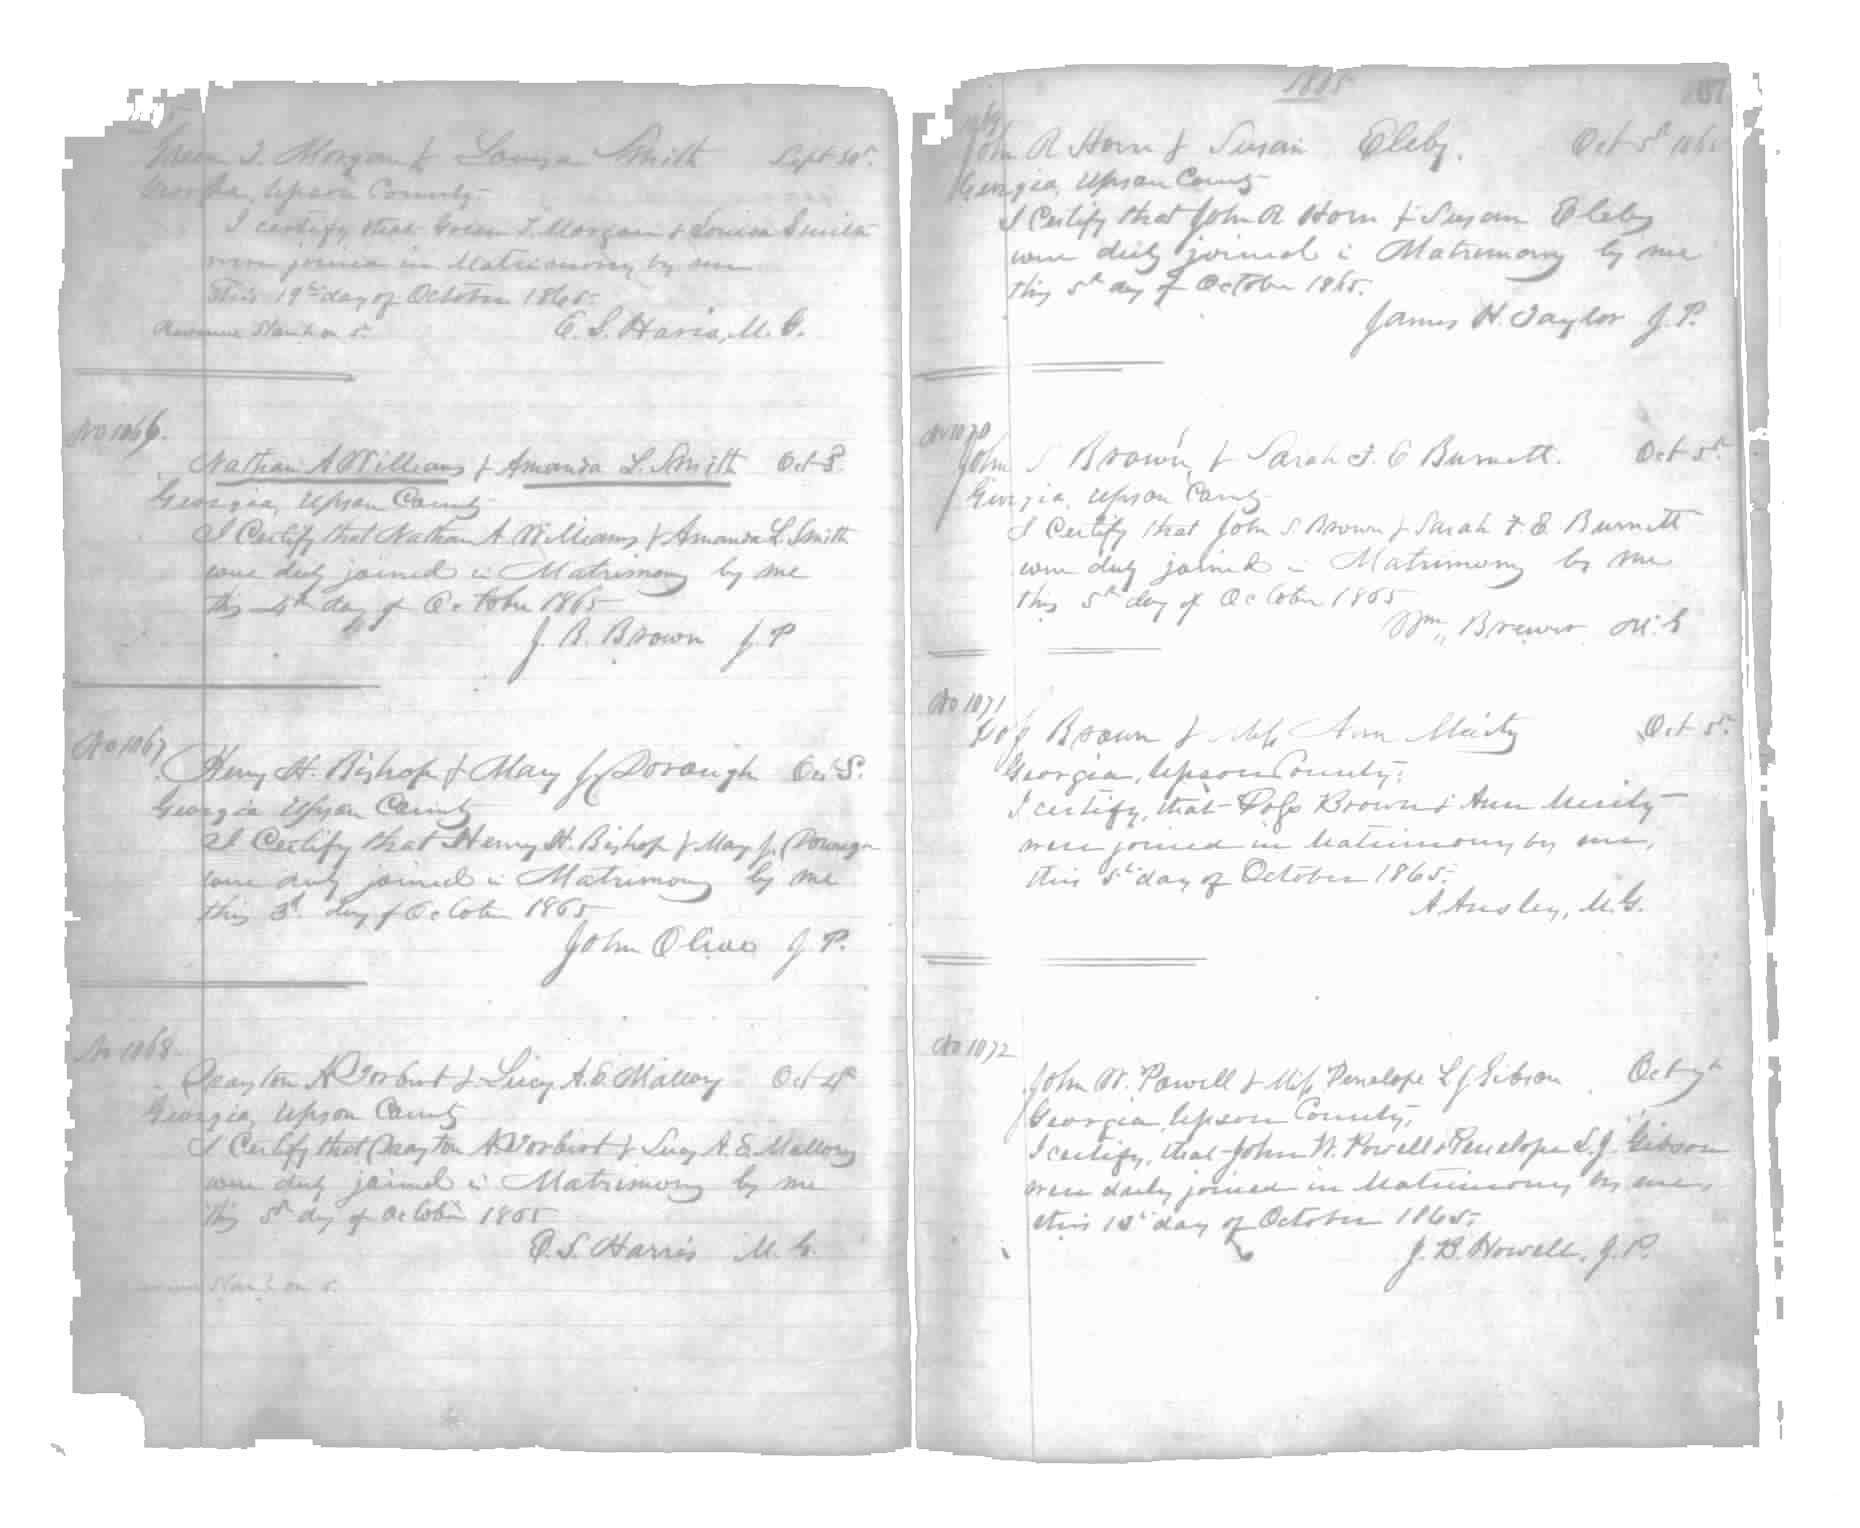 Green T. Morgan & Louisa Smith Sept 30th
Georgia, Upson County
I certify, that Green T. Morgan & Louisa Smith
were joined in Matrimony by me
This 19th day of October 1865.
Revenue Stamp on 5.
E. S. Haris, M. G.
No 1066.
Nathan A Williams & Amanda L. Smith Oct 3d.
Georgia, Upson County
I Certify that Nathan A. Williams & Amanda L. Smith
were duly joined in Matrimony by me
this 4th day of October 1865
J. B. Brown J. P
No 1067
Henry H. Bishop & Mary J. Dorough Oct 3.
Georgia Upson County
I Certify that Henry H. Bishop & Mary J.
were duly joined in Matrimony by me
this 3d. day of October 1865
John Olive J. P.
No 1068
Drayton A & Lucy A. E. Mallory Oct 4th
Georgia, Upson County
I Certify that Drayton A & Lucy A. E. Mallory
were duly joined in Matrimony by me
this 5th day of October 1865
E. S. Harris M. G.
Stamp on 5.
1865
John R Horn & Susan Eleby. Oct 5th 1865
Georgia, Upson County
I Certify that John R Horn & Susan Eleby
were duly joined in Matrimony by me
this 5th day of October 1865.
James H. Taylor J. P.
No 1070
John S Brown & Sarah F. E Burnett. Oct 5th.
Georgia, Upson County
I Certify that John S. Brown & Sarah F. E. Burnett
were duly joined in Matrimony by me
this 5th day of October 1865
Wm. Brewer M. G
No 1071
Brown & Miss Ann Oct 5th.
Georgia, Upson County.
I certify, that Brown & Ann
were joined in Matrimony by me,
this 5th day of October 1865.
A Ansley, M. G.
No 1072
John W. Powell & Miss Penelope L J Gibson Oct 7th
Georgia, Upson County,
I certify, that John W. Powell & Penelope L. J. Gibson
were duly joined in Matrimony by me,
this day of October 1865.
J. B. Howell, J. P.